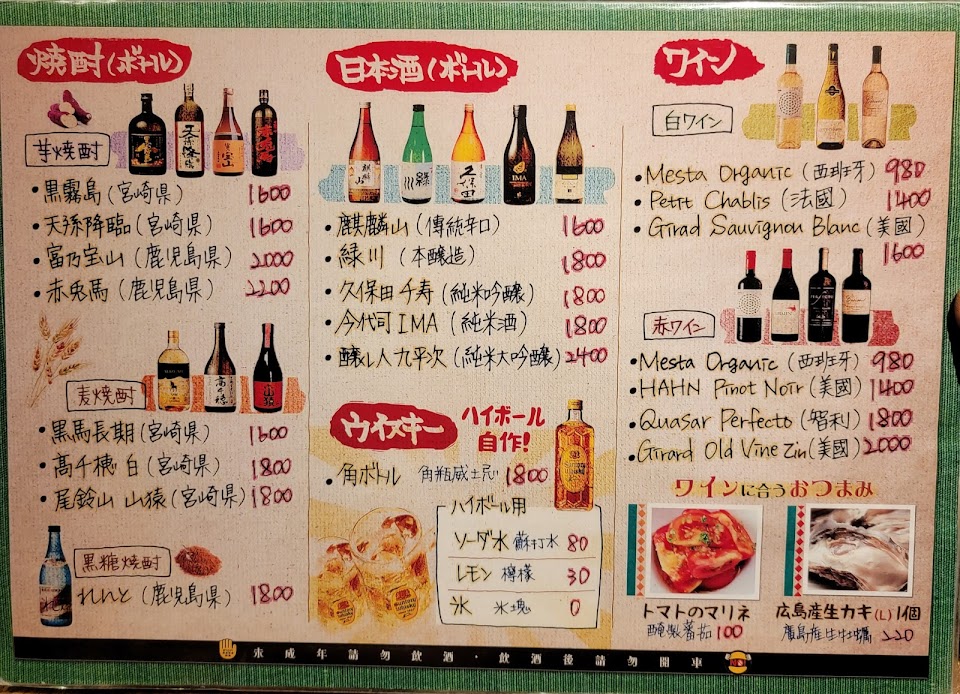 焼酎(ボトル)
芋焼酎
・黒霧島(宮崎県) 1600
・天孫降臨(宮崎県) 1600
・富乃宝山(鹿児島県) 2000
・赤兎馬(鹿児島県) 2200
麦焼酎
・黒馬長期(宮崎県) 1600
・高千穂 白(宮崎県) 1800
・尾鈴山 山猿(宮崎県) 1800
黒糖焼酎
れんと(鹿児島県) 1800
日本酒(ボトル)
・麒麟山(傳統辛口) 1600
・緑川(本醸造) 1800
・久保田千寿(純米吟醸) 1800
・今代司IMA(純米酒) 1800
・醸し人九平次(純米大吟醸) 2400
ウイスキー
ハイボール
自作!
・角ボトル 角瓶威士忌 1800
ハイボール用
ソーダ水 蘇打水 80
レモン 檸檬 30
氷 氷塊 0
ワイン
白ワイン
・Mesta Organic(西班牙) 980
・Petit Chablis(法國) 1400
・Girad Sauvignon Blanc(美國)
1600
赤ワイン
・Mesta Organic(西班牙) 980
・HAHN Pinot Noir(美國) 1400
・Quasar Perfecto(智利) 1800
・Girard Old Vine Zin(美國) 2000
ワインに合うおつまみ
トマトのマリネ
醃製蕃茄 100
広島産生カキ(L)1個
廣島産生牡蠣 220
未成年請勿飲酒・飲酒後請勿開車